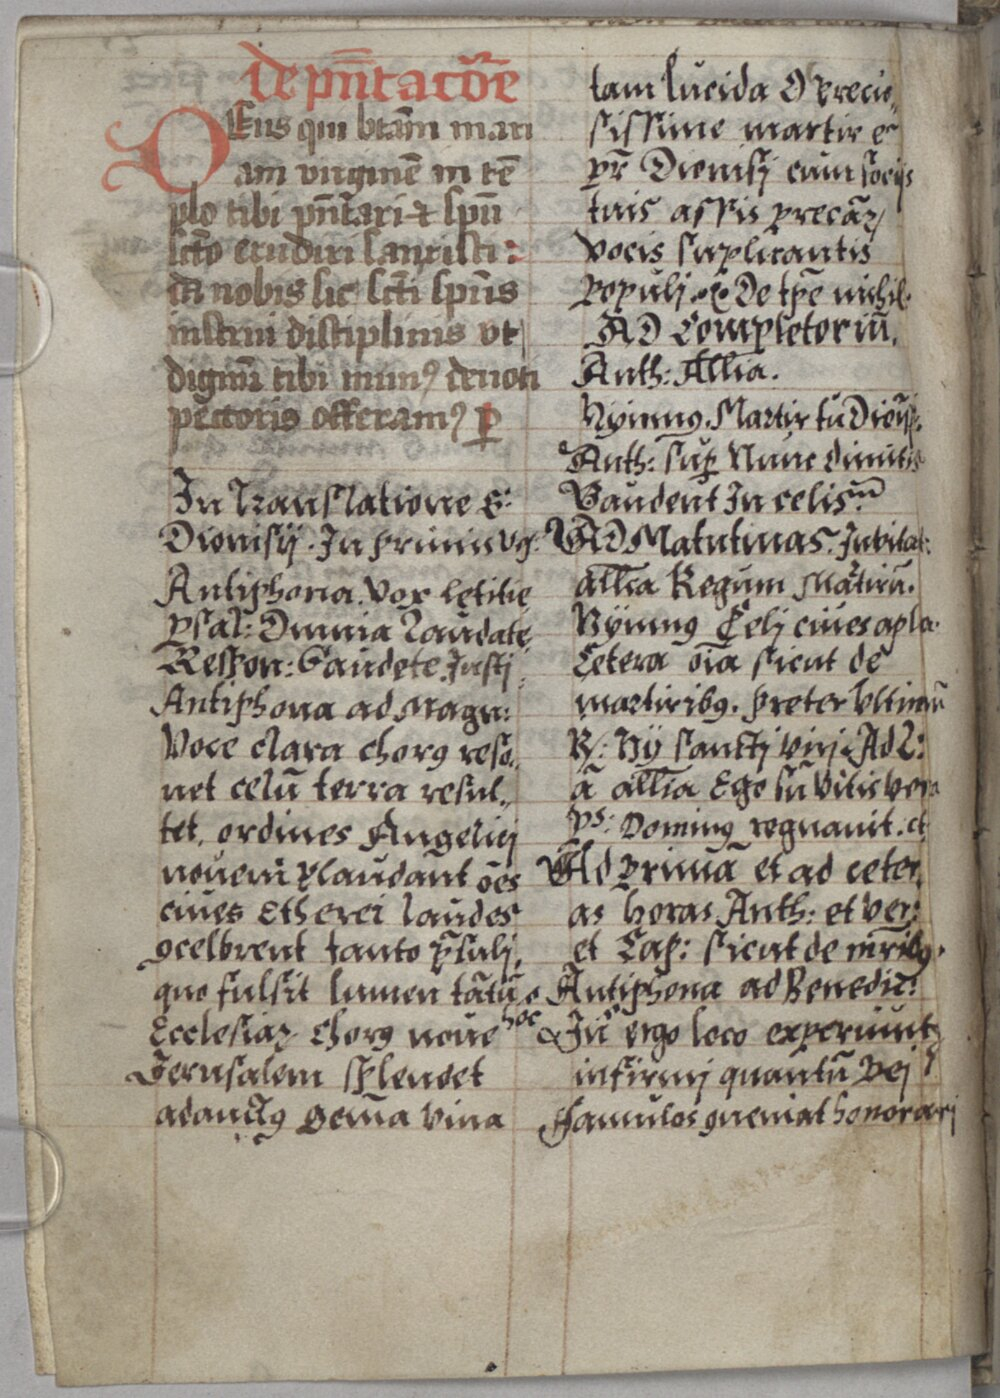 de pn̄tac͠oe
DEus qui btām mari
am virginē in tē
plo tibi pn̄tari et spū
scto erudiri sanxisti:
da nobis sic scti spūs
instrui disciplinis vt
dignū tibi munꝰ deuoti
pectoris offeramꝰ p̱
In Translatione S:
Dionisij. In primis vg:
Antiphona. Vox letitie
psal: Omnia Laudate
Respon: Gaudete Justi
Antiphona ad Magn:
Voce clara chorꝰ reso„
net celū terra resul„
tet, ordines Angelici
nouem plaudant ōēs
ciues Etherei laudes
ꝯcelbrent tanto p̄suli,
quo fulsit lumen tātū
Ecclesiaꝝ chorꝰ noue hoc
Jerusalem splendet
adauctꝰ gēma viua
tam lucida O precio„
sissime martir et
pr̄ Dionisij cum socijs
tuis assis precaꝝ
vocis suplicantis
populj. De tpē nichil.
AD Completoriū.
Anth: Allia.
Hÿmnꝰ. Martir tū Dionisi.
Anth: sup Nunc dimitis
Gaudent In celis.
AD Matutinas. Inuitat:
allīa Regum Martirū.
Hÿmnꝰ Celj ciues apla.
Cetera oīa sicut de
martiribꝰ. preter vltimū
R/: Hÿ sanctj virj Ad L:
ā allīa Ego sū vitis vera
ps: Dominꝰ regnauit. et
Ad primā et ad ceter„
as horas Anth: et ver:
et Cap: sicut de mr̄ibꝰ.
Antiphona ad Benedic:
In ergo loco experiunt
infirmj quantū Dej
famulos ꝯueniat honorarj